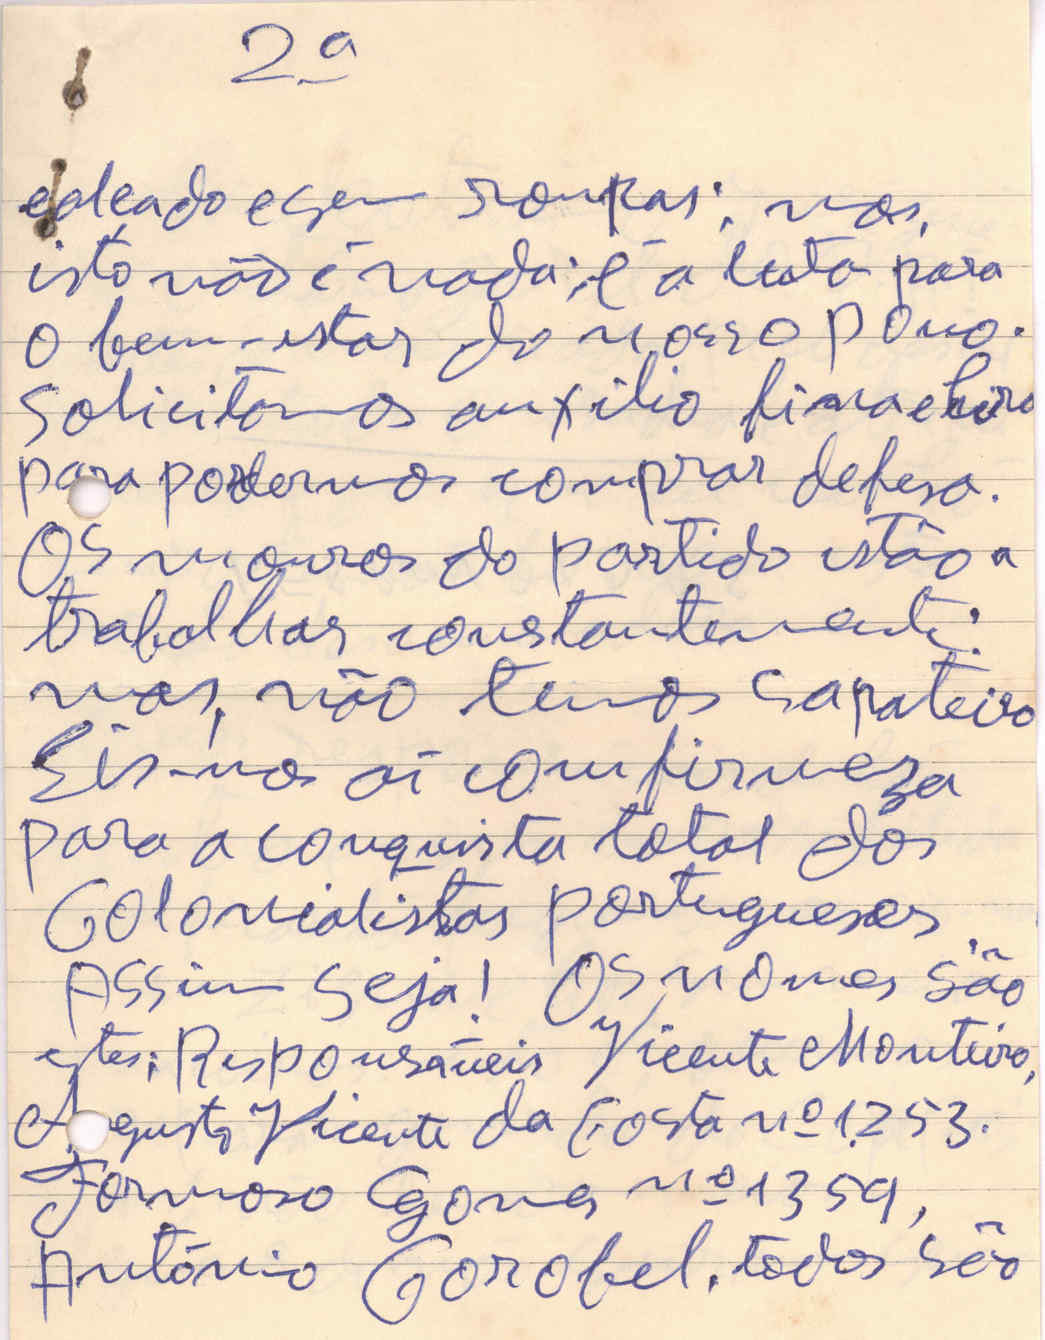 2ª
e sem roupas; mas,
isto não é nada; é a luta para
o bem-estar do nosso povo.
Solicitamos auxílio
para podermos comprar defesa.
Os mouros do partido estão a
trabalhar constantemente;
mas, não temos sapateiro
Eis-nos aí com firmeza
para a conquista total dos
Colonialistas portugueses
Assim seja! Os nomes são
estes; Responsáveis Vicente Monteiro,
Augusto Vicente da Costa nº 1253.
Formoso Gomes nº 1359,
António Gorobel, todos são